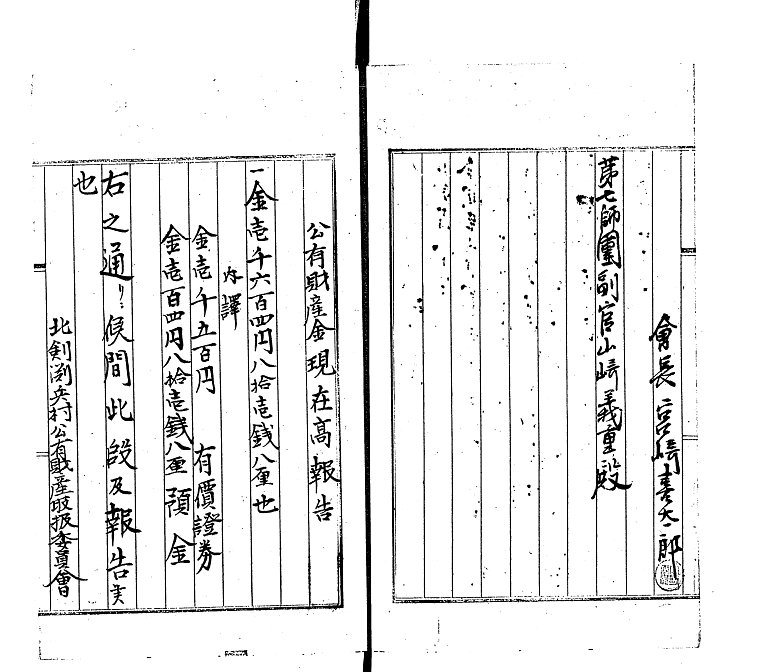 會長 宮崎
第七師團副官山崎義重殿
公有財産金現在高報告
一金壱千六百四円八拾壱銭八厘也
内譯
金壱千五百円 有價證券
金壱百四円八拾壱銭八厘 預金
右之通リ候間此段及報告候
也
北剣渕兵村公有財産取扱委員會